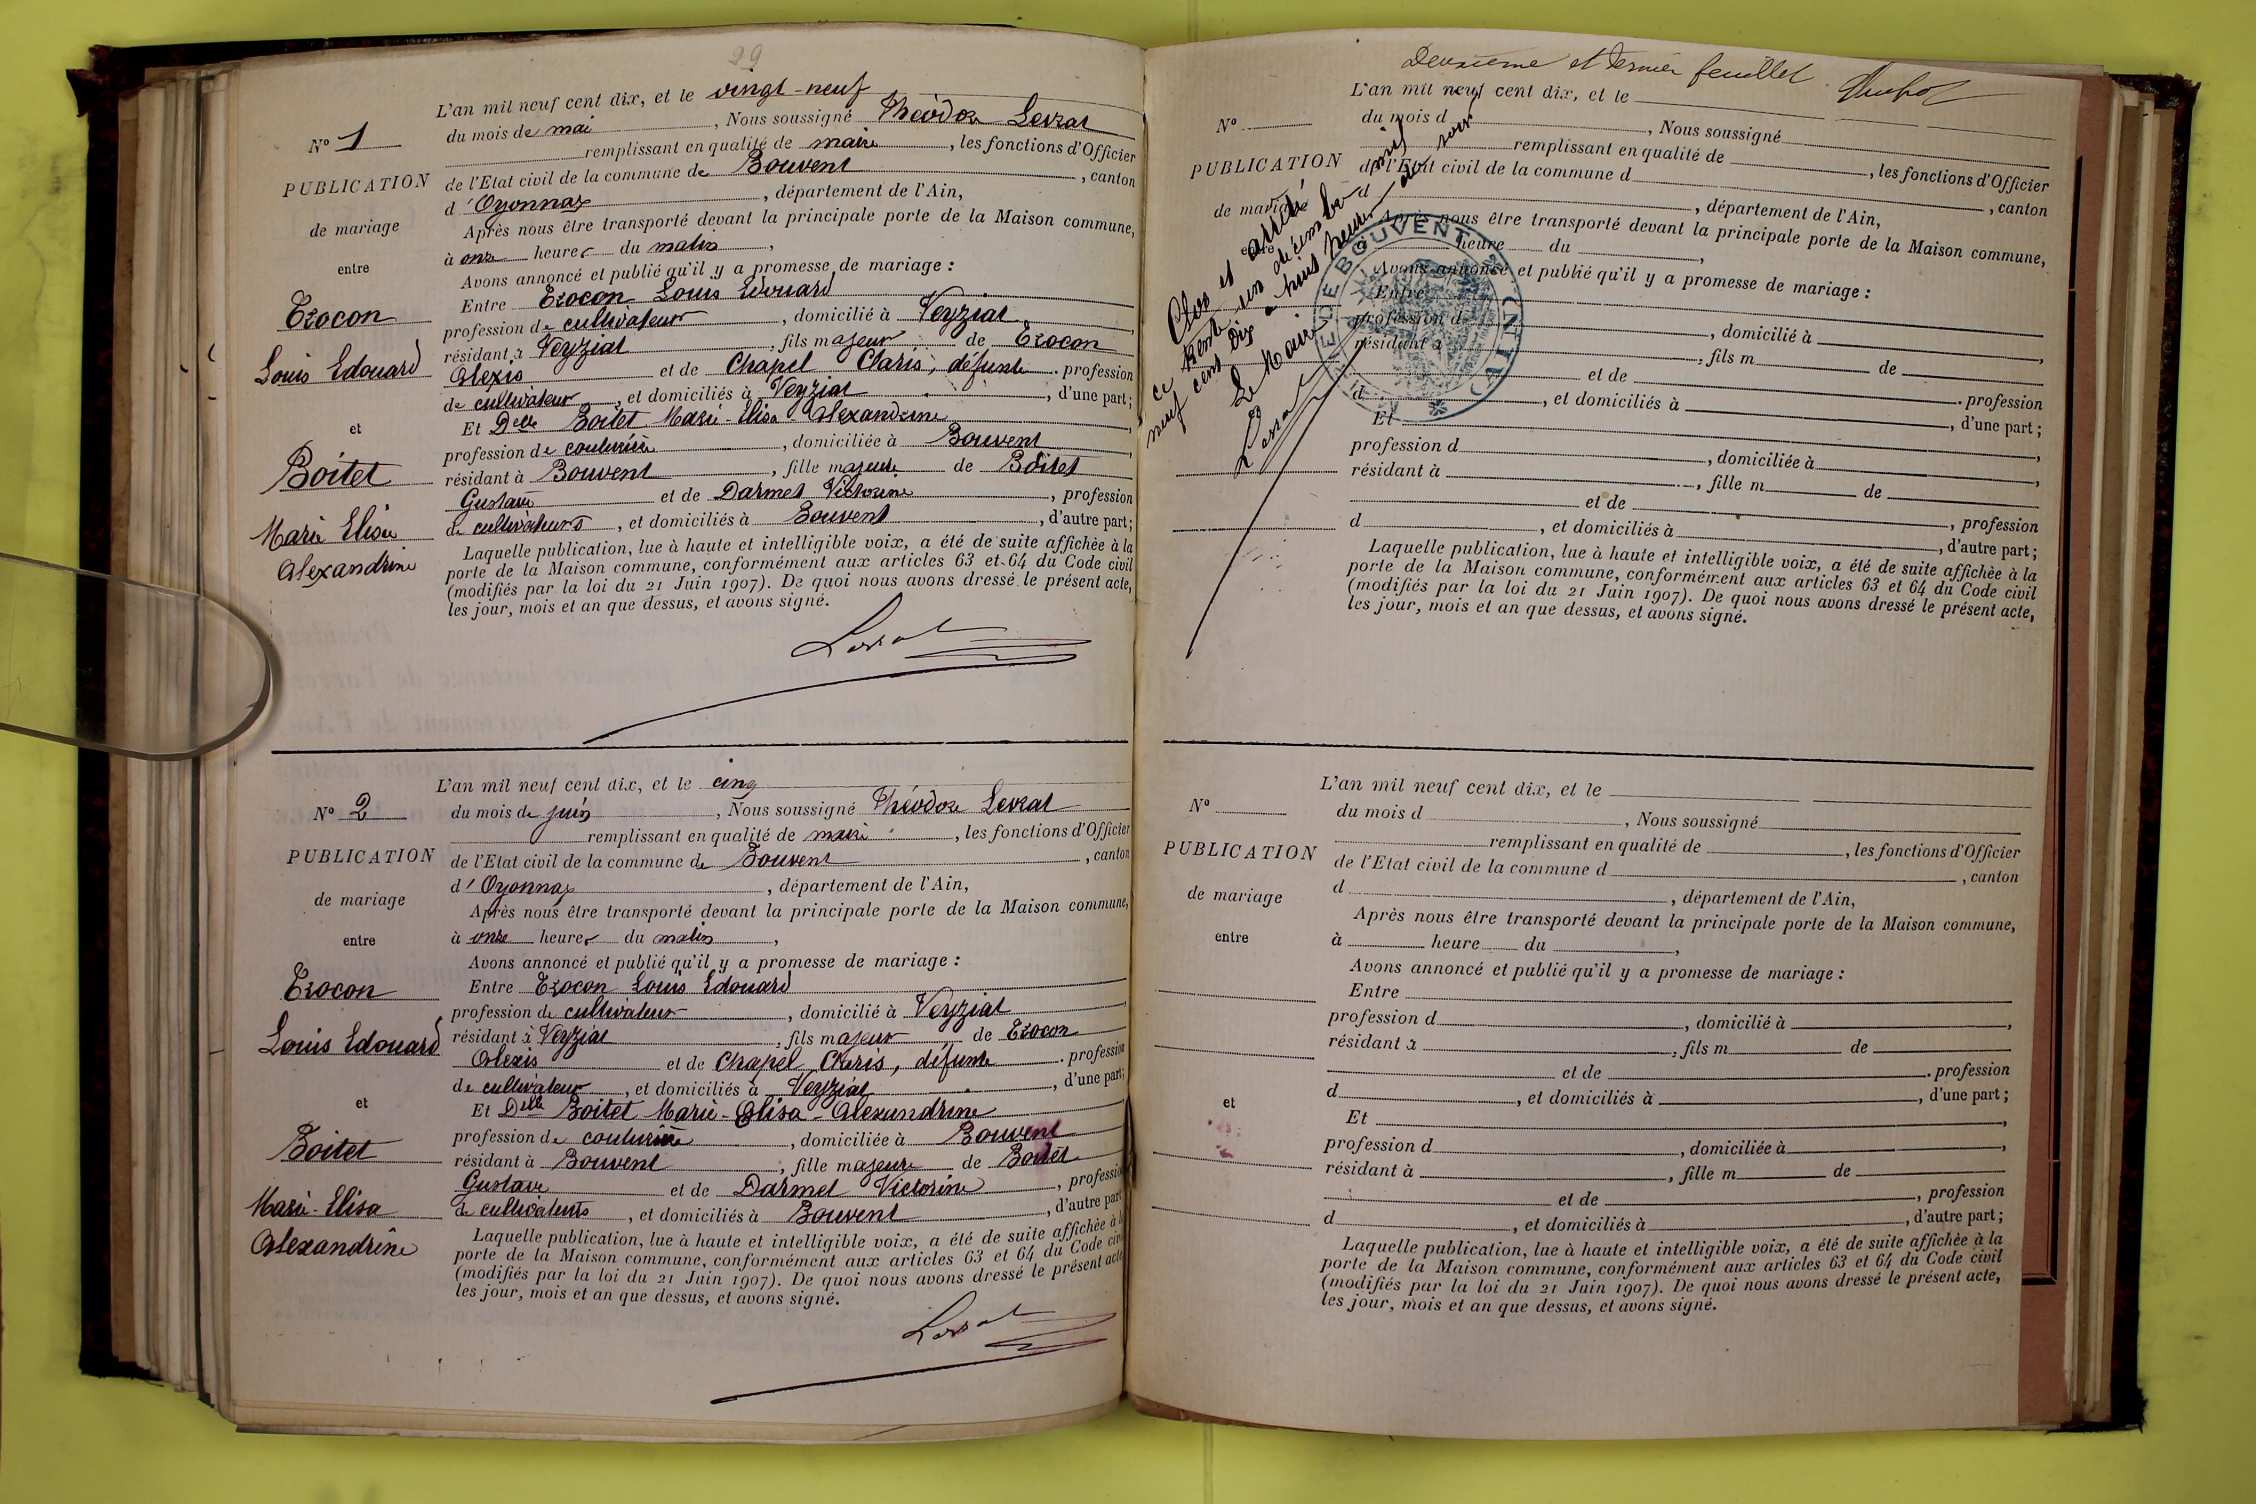 29
L'an mil neuf cent dix, et le vingt-neuf
du mois de mai, Nous soussigné Théodore Levrat
remplissant en qualité de maire, les fonctions d'Officier
de l'Etat civil de la commune de Bouvent, canton
d'Oyonnax, département de l'Ain,
Après nous être transporté devant la principale porte de la Maison commune,
à onze heures du matin,
Avons annoncé et publié qu'il y a promesse de mariage :
Entre Trocon Louis Edouard
profession de cultivateur, domicilié à Veyziat,
résidant à Veyziat, fils majeur de Trocon
Alexis et de Chapel Claris, défunte. profession
de cultivateur, et domiciliés à Veyziat, d'une part;
Et Delle Boitet Marie-Elisa-Alexandrine,
profession de couturière, domiciliée à Bouvent,
résidant à Bouvent, fille majeure de Boitet
Gustave et de Darmet Victorine, profession
de cultivateurs, et domiciliés à Bouvent, d'autre part;
Laquelle publication, lue à haute et intelligible voix, a été de suite affichée à la
porte de la Maison commune, conformément aux articles 63 et 64 du Code civil
(modifiés par la loi du 21 Juin 1907). De quoi nous avons dressé le présent acte,
les jour, mois et an que dessus, et avons signé.
Levrat
N° 1
PUBLICATION
de mariage
entre
Trocon
Louis Edouard
et
Boitet
Marie Elisa
Alexandrine
L'an mil neuf cent dix, et le cinq
du mois de juin, Nous soussigné Théodore Levrat
remplissant en qualité de maire, les fonctions d'Officier
de l'Etat civil de la commune de Bouvent, canton
d'Oyonnax, département de l'Ain,
Après nous être transporté devant la principale porte de la Maison commune,
à onze heures du matin,
Avons annoncé et publié qu'il y a promesse de mariage :
Entre Trocon Louis Edouard
profession de cultivateur, domicilié à Veyziat,
résidant à Veyziat, fils majeur de Trocon
Alexis et de Chapel Claris, défunte. profession
de cultivateur, et domiciliés à Veyziat, d'une part;
Et Delle Boitet Marie-Elisa-Alexandrine
profession de couturière, domiciliée à Bouvent
résidant à Bouvent, fille majeure de Boitet
Gustave et de Darmet Victorine, profession
de cultivateurs, et domiciliés à Bouvent, d'autre part
Laquelle publication, lue à haute et intelligible voix, a été de suite affichée à la
porte de la Maison commune, conformément aux articles 63 et 64 du Code civil
(modifiés par la loi du 21 Juin 1907). De quoi nous avons dressé le présent acte
les jour, mois et an que dessus, et avons signé.
Levrat
N° 2
PUBLICATION
de mariage
entre
Trocon
Louis Edouard
et
Boitet
Marie-Elisa
Alexandrine
Deuxième et dernier feuillet.
L'an mil neuf cent dix, et le
du mois d, Nous soussigné
remplissant en qualité de, les fonctions d'Officier
de l'Etat civil de la commune d, canton
d, département de l'Ain,
Après nous être transporté devant la principale porte de la Maison commune,
heure du,
Avons annoncé et publié qu'il y a promesse de mariage :
Entre
profession d, domicilié à,
résidant à, fils m de
et de. profession
d, et domiciliés à, d'une part;
Et,
profession d, domiciliée à,
résidant à, fille m de
et de, profession
d, et domiciliés à, d'autre part;
Laquelle publication, lue à haute et intelligible voix, a été de suite affichée à la
porte de la Maison commune, conformément aux articles 63 et 64 du Code civil
(modifiés par la loi du 21 Juin 1907). De quoi nous avons dressé le présent acte,
les jour, mois et an que dessus, et avons signé.
N°
PUBLICATION
de mariage
Clos et arrêté
ce trente un décembre mil
neuf cent dix à huit heures du soir
Le Maire
Levrat
MAIRIE DE BOUVENT (AIN)
L'an mil neuf cent dix, et le
du mois d, Nous soussigné
remplissant en qualité de, les fonctions d'Officier
de l'Etat civil de la commune d, canton
d, département de l'Ain,
Après nous être transporté devant la principale porte de la Maison commune,
à heure du,
Avons annoncé et publié qu'il y a promesse de mariage :
Entre
profession d, domicilié à,
résidant à, fils m de
et de. profession
d, et domiciliés à, d'une part;
Et,
profession d, domiciliée à,
résidant à, fille m de
et de, profession
d, et domiciliés à, d'autre part;
Laquelle publication, lue à haute et intelligible voix, a été de suite affichée à la
porte de la Maison commune, conformément aux articles 63 et 64 du Code civil
(modifiés par la loi du 21 Juin 1907). De quoi nous avons dressé le présent acte,
les jour, mois et an que dessus, et avons signé.
N°
PUBLICATION
de mariage
entre
et